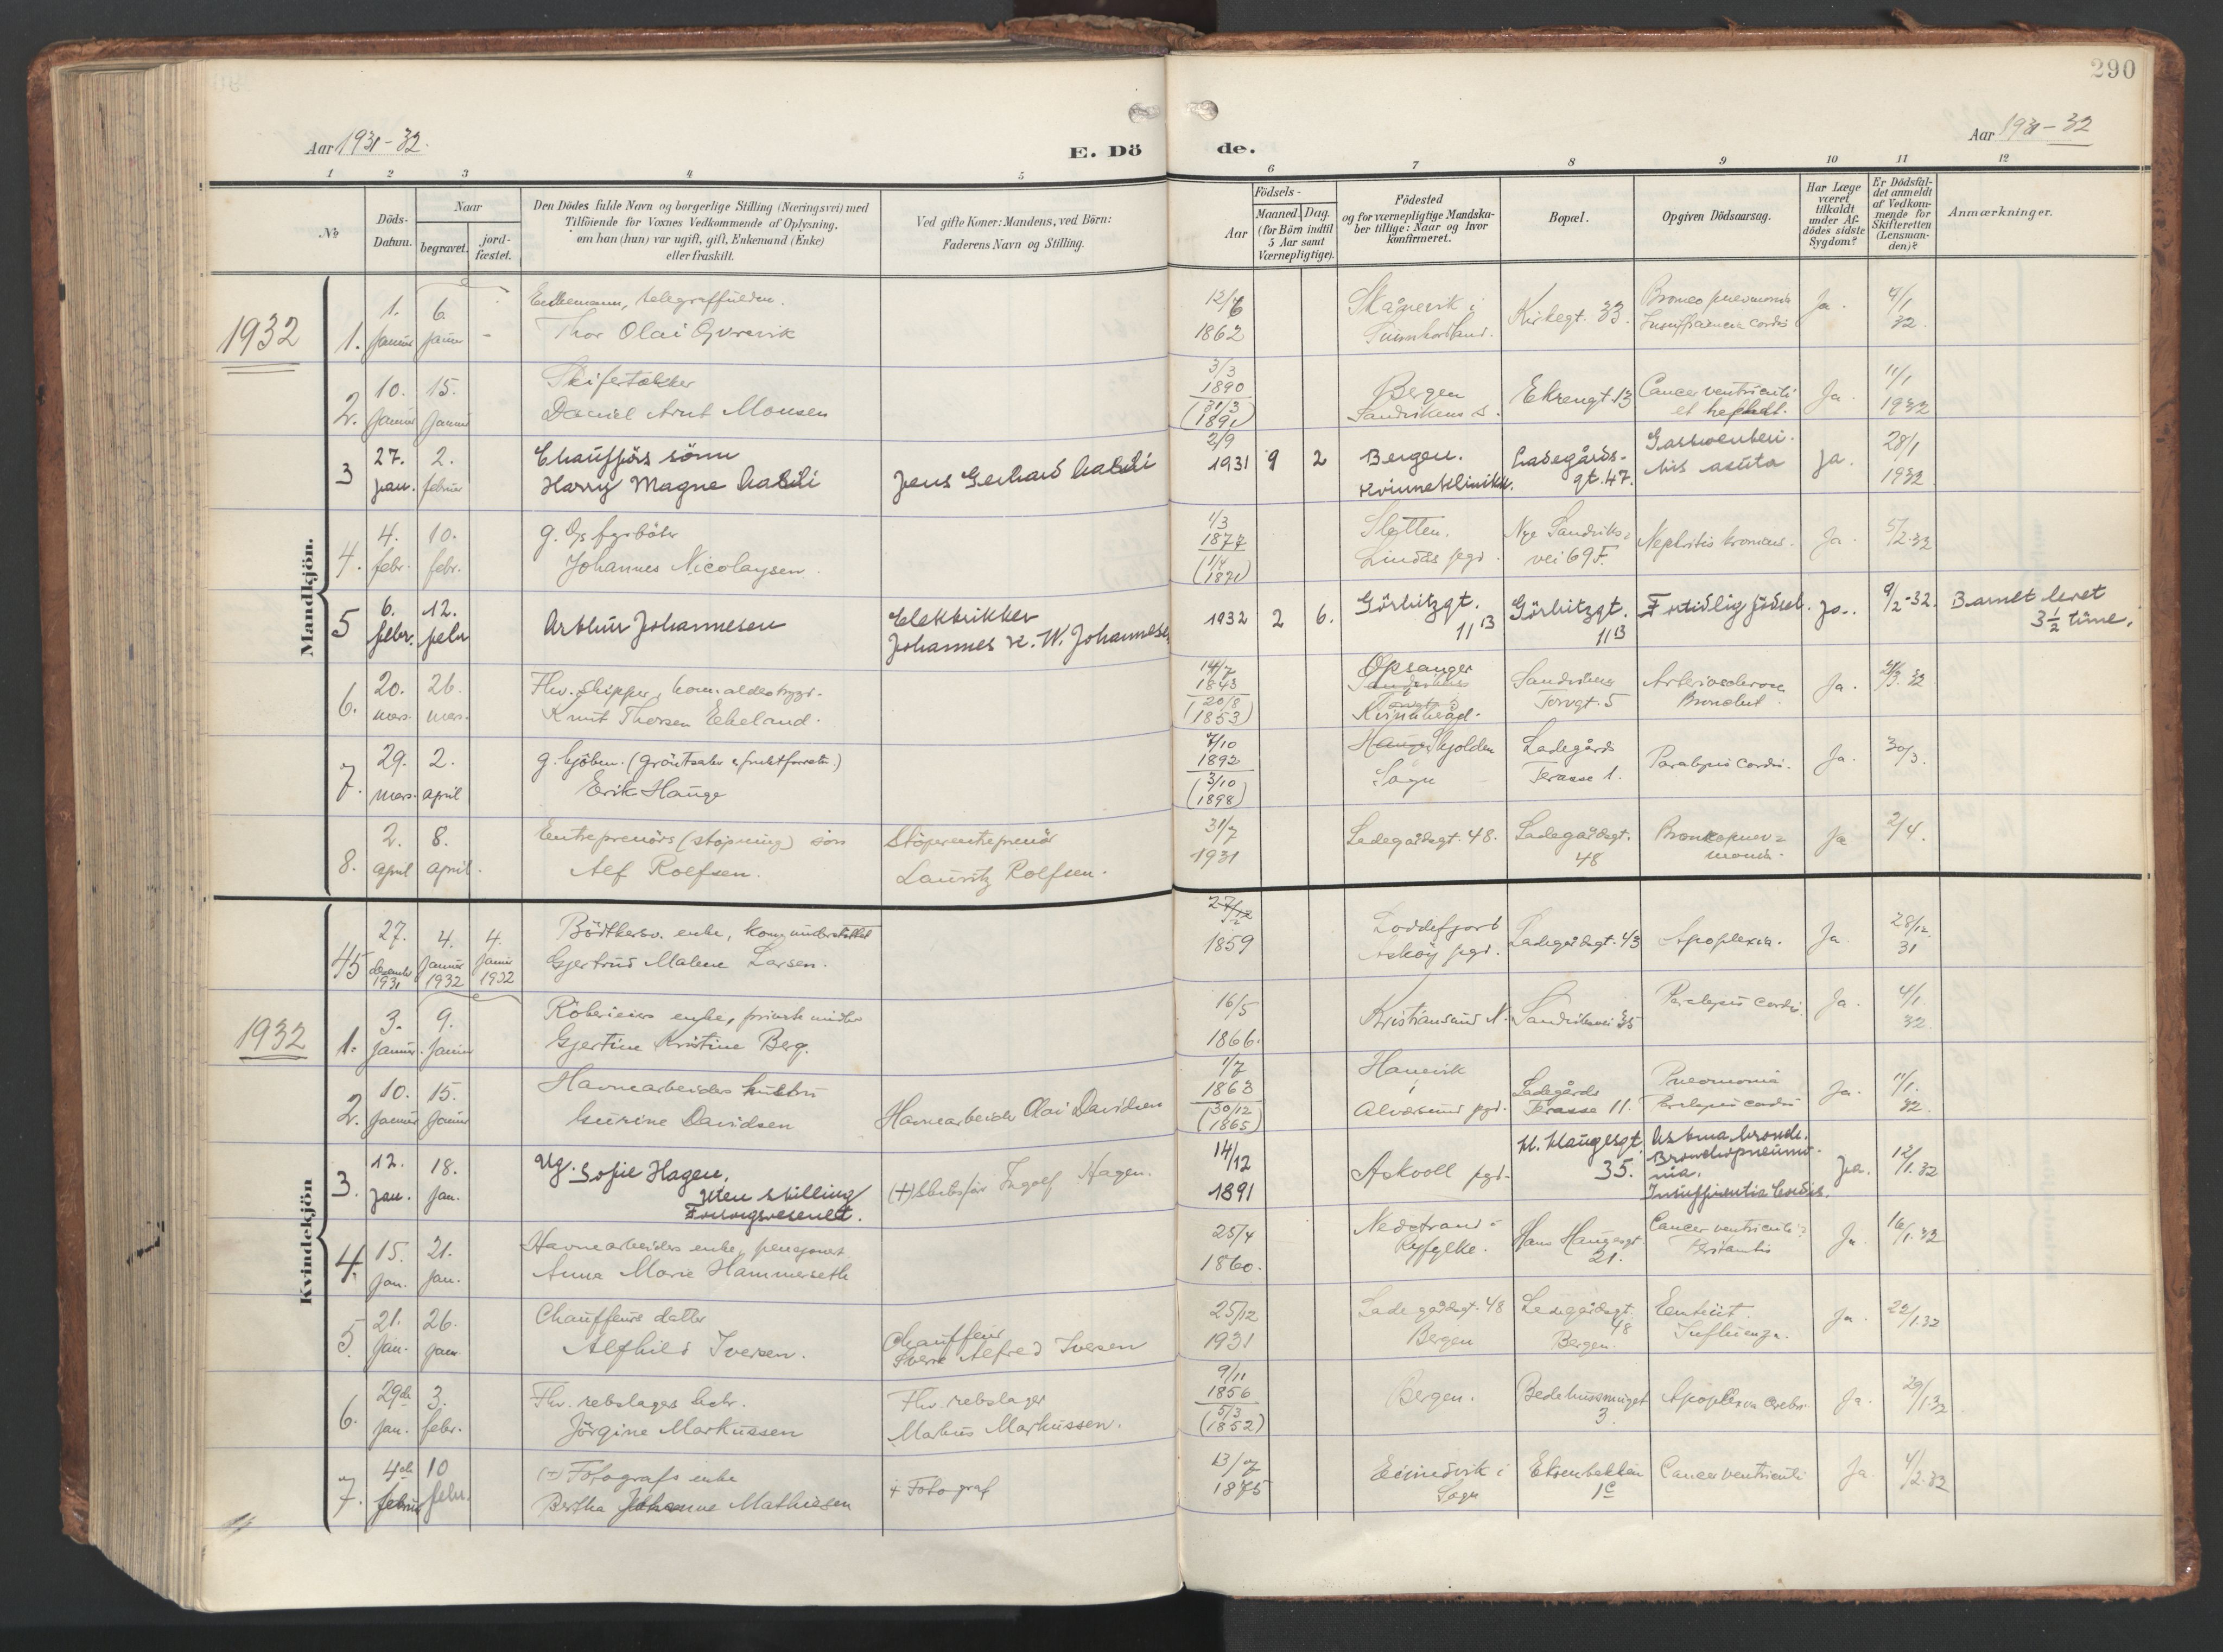 290
Aar 1931-32.
E. Dö
de.
Aar 1931-32
1 2 3 4 5 6 7 8 9 10 11 12
No
Döds-
Datum.
Naar
begravet.
jord-
fæstet.
Den Dödes fulde Navn og borgerlige Stilling (Næringsvei) med
Tilföiende for Voxnes Vedkommende af Oplysning,
om han (hun) var ugift, gift, Enkemand (Enke)
eller fraskilt.
Ved gifte Koner: Mandens, ved Börn:
Faderens Navn og Stilling.
Födsels-
Aar
Maaned. Dag.
(for Börn indtil
5 Aar samt
Værnepligtige).
Födested
og for værnepligtige Mandska-
ber tillige: Naar og hvor
konfirmeret.
Bopæl.
Opgiven Dödsaarsag.
Har Læge
været
tilkaldt
under Af-
dödes sidste
Sygdom?
Er Dödsfal-
det anmeldt
af Vedkom-
mende for
Skifteretten
(Lensman-
den)?
Anmærkninger.
Mandkjön.
1932
1. 1. januar 6. januar -
Enkemann,
Thor Olai
12/6
1862
Skånevik i
Kirkegt. 33.
Ja.
4/1
32.
2. 10. januar 15. januar
Skifertekker
Daniel Arnt Monsen
3/3
1890
(31/3
1891)
Bergen
Sandvikens s.
Ekrengt. 13
Cancer ventriculi
et
Ja.
11/1
1932
3 27. jan. 2. februar
Chauffjörs sönn
Harry Magne
Jens Gerhard
2/9
1931 9 2
Bergen.
Kvinneklinikk.
Ladegårds-
gt. 47.
Ja.
28/1
1932
4. 4. febr. 10. febr.
g. fyrböter
Johannes Nicolaysen.
1/3
1877
Sletten.
Lindås pgd.
Nye Sandviks-
vei 69 F.
Ja.
5/2-32
5 6. febr. 12. febr
Arthur Johannesen
Elektrikker
Johannes K. W. Johannesen
1932 2 6.
Görbitzgt.
11 B
Görbitzgt.
11 B
For tidlig födsel.
Ja.
9/2-32.
Barnet levet
3 1/2 time.
6. 20. mars. 26. mars.
Fhv. skipper, kom. alderstrygd.
Knut Thorsen Ekeland.
14/7
1843
(20/8
1853)
Opsanger
Kvinnherad.
Sandvikens
Torvgt. 5
Arteriosclerose
Ja.
7. 29. mars. 2. april
g. kjöbm. (
Erik Hauge
7/10
1892
(3/10
1898)
Skjolden
Sogn
Ladegårds
Terasse 1.
Paralysis cordis.
Ja.
30/3.
8. 2. april 8. april.
Entreprenörs (stöpning) sön
Alf Rolfsen.
Stöperentreprenör
Lauritz Rolfsen.
31/7
1931
Ladegårdsgt. 48.
Ladegårdsgt.
48
Bronkopnev-
monia.
Ja
2/4.
Kvindekjön
45 27. desember 1931 4. januar 1932 4. januar 1932
Bödkersv. enke, kom. understöttet
Gjertrud Malene Larsen.
1859
Loddefjord
Askøy pgd.
Ladegårdsgt. 43
Apoplexia.
Ja
28/12.
31
1932
1. 3. januar. 9. januar
enke, private midler
Gjertine Kristine Berg.
16/5
1866.
Kristiansund N.
Sandviksvei 35
Paralysis cordis.
Ja.
4/1.
32.
2. 10. januar 15. januar
Havnearbeiders hustru
Gurine Davidsen
Havnearbeider Olai Davidsen
1/7
1863
(30/12
1865)
Hanevik
i
Alversund pgd.
Ladegårds
Terasse 11.
Pneomonia
Paralysis cordis
Ja.
11/1.
32
3. 12. jan. 18. jan.
Ug. Sofie Hagen.
Uten stilling
Forsorgsvesenet.
(+) Skibsför Ingolf Hagen.
14/12
1891
Askvoll pgd.
H. Haugesgt.
35.
Astma bronch.
Bronchopneumo-
nia.
Insuffisientia Cordis.
Ja.
12/1.32
4. 15. jan. 21. jan.
Havnearbeiders enke, pensjonert.
Anna Marie Hammerseth
25/4
1860.
Nedstrand i
Ryfylke.
Hans Haugesgt.
21.
Cancer ventriculi?
Ja.
16/1.32
5. 21. jan. 26. jan.
Chauffeurs datter
Alfhild Iversen.
Chauffeur
Sverre Alfred Iversen
25/12
1931
Ladegårdsgt. 48
Bergen
Ladegårdsgt.
48
Bergen.
Enterit
Influenza.
Ja.
22/1.32
6. 29de jan. 3. febr.
Fhv. rebslagers
Jörgine Markussen
Fhv. rebslager
Markus Markussen.
9/11
1856
(5/3
1852)
Bergen.
Bedehussmuget
3.
Apoplexia cerebri
Ja.
29/1.32
7. 4de februar 10 febr.
(+) Fotografs enke
Bertha Johanne Mathiesen
+ Fotograf
13/7
1875
Eivindvik i
Sogn
Ekrenbakken
1c
Cancer ventriculi
Ja.
4/2.32